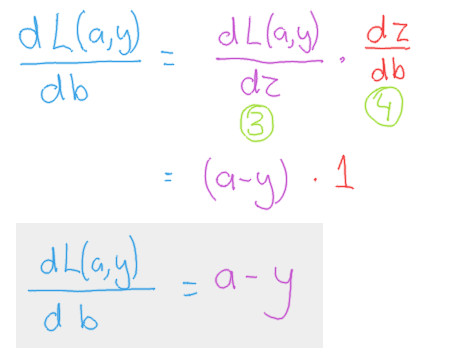 dL(a,y)/db = dL(a,y)/dz · dz/db
3 4
= (a-y) · 1
dL(a,y)/db = a-y